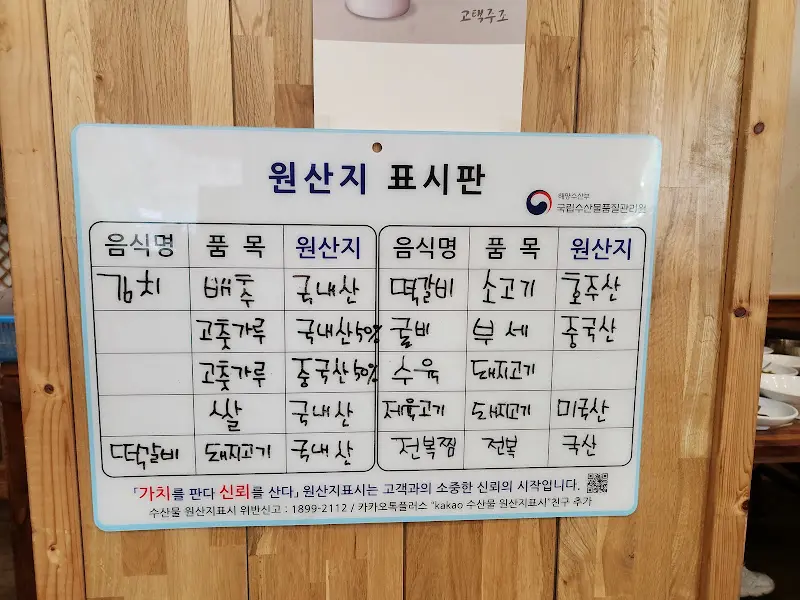 고택주조
원산지 표시판
해양수산부
국립수산물품질관리원
음식명 품 목 원산지 음식명 품 목 원산지
김치 배추 국내산 떡갈비 소고기 호주산
고춧가루 국내산50% 굴비 부세 중국산
고춧가루 중국산50% 수육 돼지고기
쌀 국내산 저육고기 돼지고기 미국산
떡갈비 돼지고기 국내산 전복찜 전복 국산
「가치를 판다 신뢰를 산다」 원산지표시는 고객과의 소중한 신뢰의 시작입니다.
수산물 원산지표시 위반신고 : 1899-2112 / 카카오톡플러스 "kakao 수산물 원산지표시"친구 추가